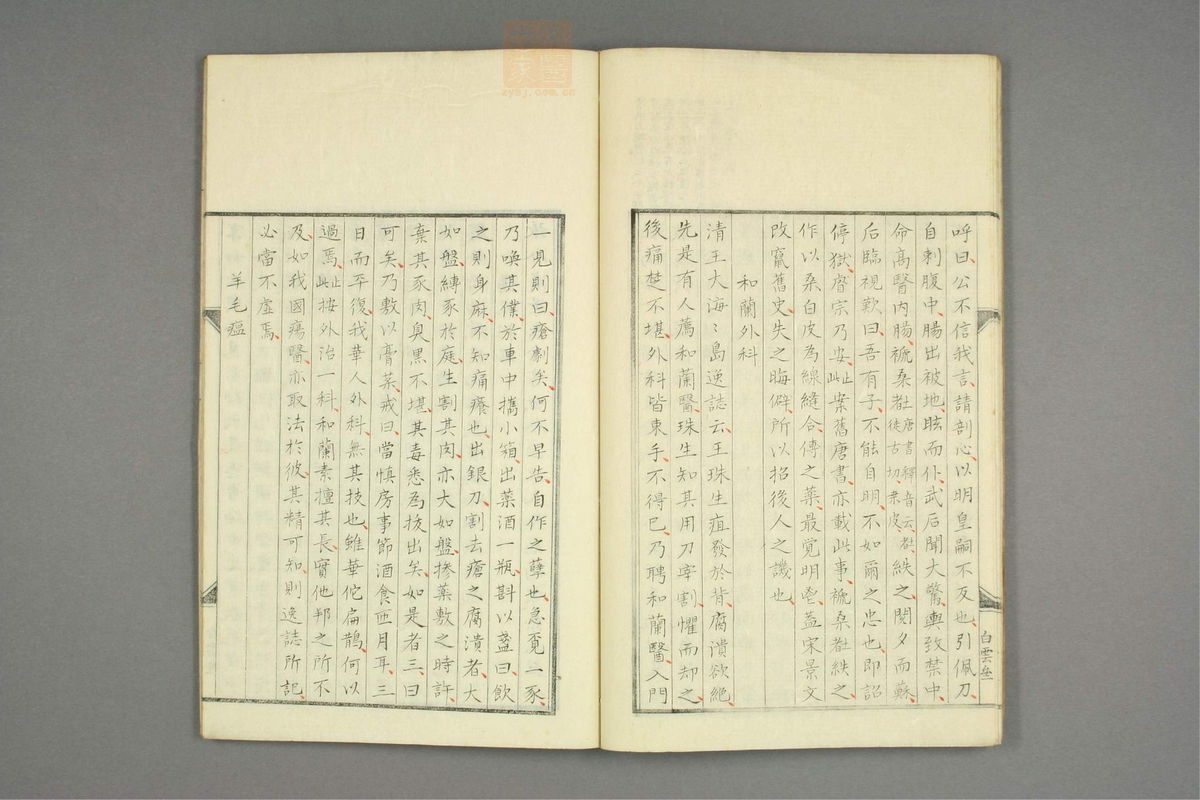 呼曰、公不信我言、請剖心以明皇嗣不反也、引佩刀、
自刺腹中、腸出被地、眩而仆、武后聞大驚、輿致禁中、
命高醫内腸、褫桑𣗥紩之、閱夕而蘇、
后臨視歎曰、吾有子、不能自明、不如爾之忠也、即詔
停獄、睿宗乃安、此案舊唐書、亦載此事、褫桑𣗥紩之、
作以桑白皮為線縫合、傅之藥、最覚明鬯、蓋宋景文
改竄舊史、失之晦僻、所以招後人之譏也、
和蘭外科
清王大海〻島逸誌云、王珠生疽發於背、腐潰欲絕、
先是有人薦和蘭醫、珠生知其用刀宰割、懼而却之、
後痛楚不堪、外科皆束手、不得已、乃聘和蘭醫、入門
一見則曰、瘡劇矣、何不早告、自作之孽也、急覓二豕、
乃喚其僕、於車中攜小箱、出藥酒一瓶、斟以盞曰、飲
之則身麻、不知痛癢也、出銀刀、割去瘡之腐潰者、大
如盤、縛豕於庭、生割其肉、亦大如盤、摻藥敷之、時許、
棄其豕肉、臭黑不堪、其毒悉為拔出矣、如是者三、曰
可矣、乃敷以膏藥、戒曰、當慎房事節酒食匝月耳、三
日而平復、我華人外科、無其技也、雖華佗扁鵲、何以
過焉、止此按外治一科、和蘭素擅其長、實他邦之所不
及、如我國瘍醫、亦取法於彼、其精可知、則逸誌所記、
必當不虛焉、
羊毛瘟
白雲